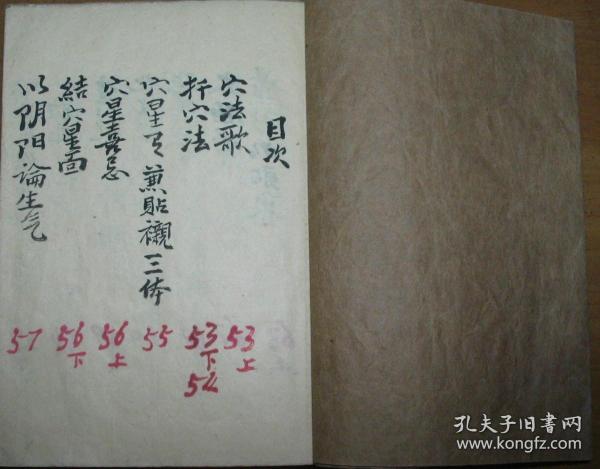 目次
穴法歌 53上
扦穴法 53下 54
穴星有兼貼襯三体 55
穴星喜忌 56上
結穴星面 56下
以阴阳論生气 57
孔夫子旧书网
www.kongfz.com